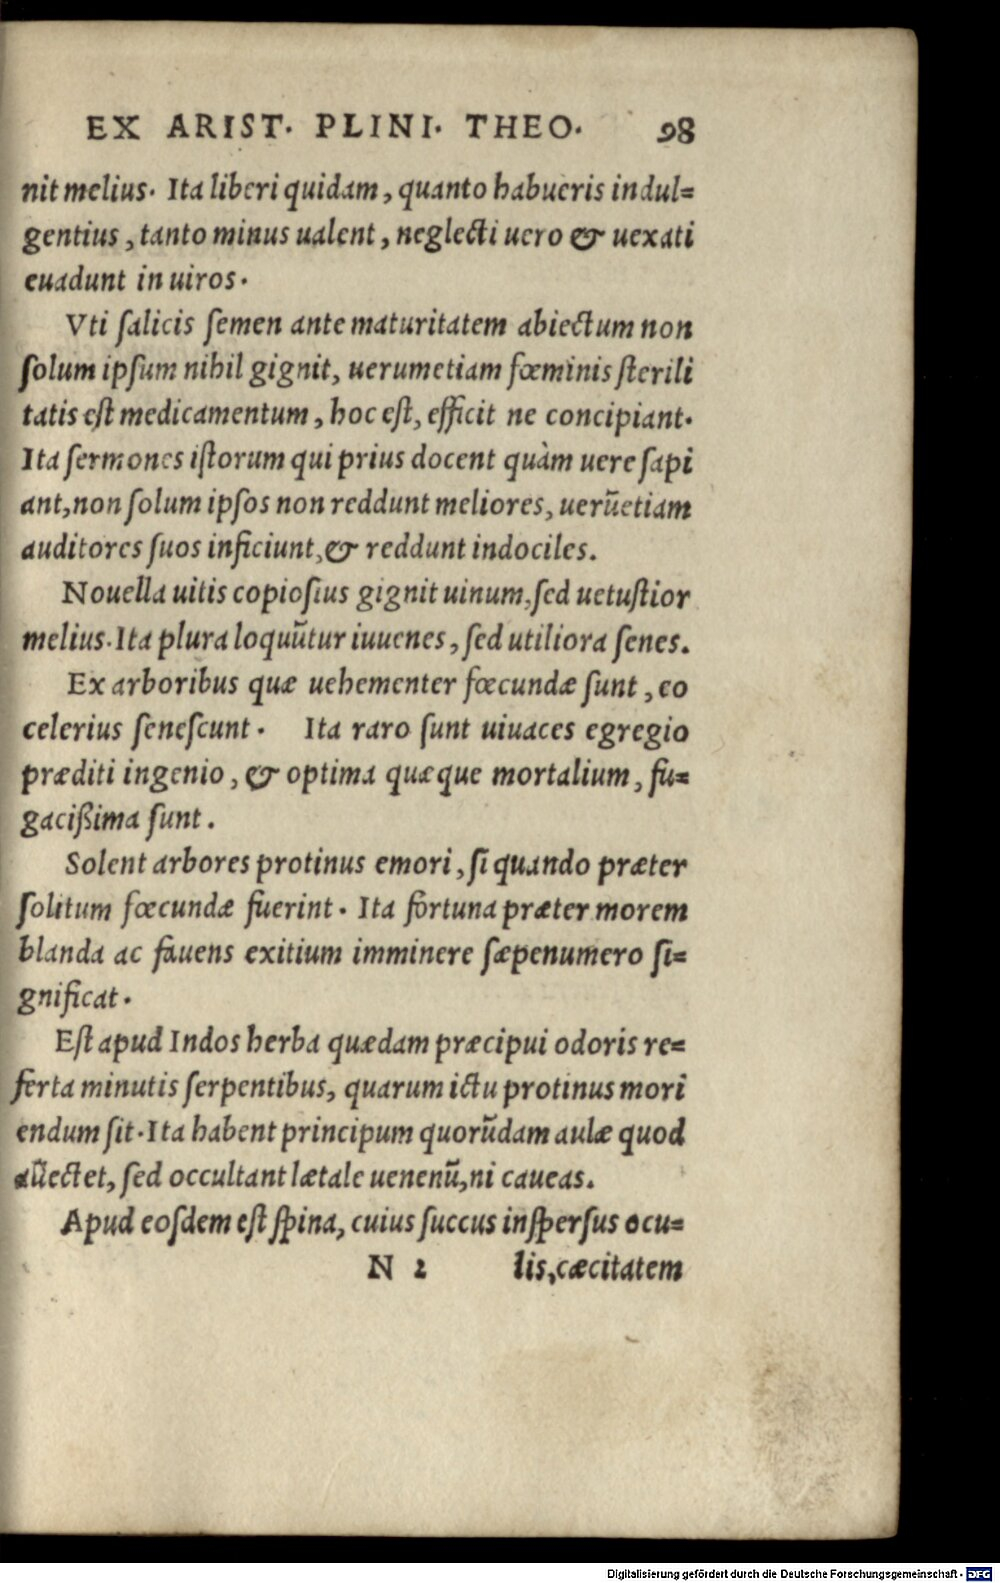 EX ARIST. PLINI. THEO. 98
nit melius. Ita liberi quidam, quanto habueris indul=
gentius, tanto minus ualent, neglecti uero & uexati
euadunt in uiros.
Vti ſalicis ſemen ante maturitatem abiectum non
ſolum ipſum nihil gignit, uerumetiam fœminis ſterili
tatis eſt medicamentum, hoc eſt, efficit ne concipiant.
Ita ſermones iſtorum qui prius docent quàm uere ſapi
ant, non ſolum ipſos non reddunt meliores, uerũetiam
auditores ſuos inficiunt, & reddunt indociles.
Nouella uitis copioſius gignit uinum, ſed uetuſtior
melius. Ita plura loquũtur iuuenes, ſed utiliora ſenes.
Ex arboribus quæ uehementer fœcundæ ſunt, eo
celerius ſeneſcunt. Ita raro ſunt uiuaces egregio
præditi ingenio, & optima quæque mortalium, fu=
gacißima ſunt.
Solent arbores protinus emori, ſi quando præter
ſolitum fœcundæ fuerint. Ita fortuna præter morem
blanda ac fauens exitium imminere ſæpenumero ſi=
gnificat.
Eſt apud Indos herba quædam præcipui odoris re=
ferta minutis ſerpentibus, quarum ictu protinus mori
endum ſit. Ita habent principum quorũdam aulæ quod
ectet, ſed occultant lætale uenenũ, ni caueas.
Apud eoſdem eſt ſpina, cuius ſuccus inſperſus ocu=
N 2 lis, cæcitatem
Digitalisierung gefördert durch die Deutsche Forschungsgemeinschaft - DFG